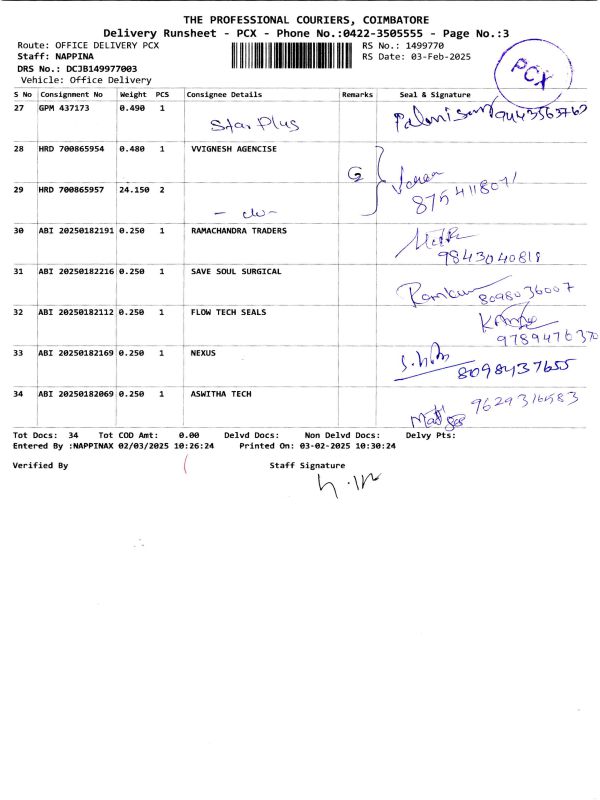 THE PROFESSIONAL COURIERS, COIMBATORE
Delivery Runsheet - PCX - Phone No.:0422-3505555 - Page No.:3
Route: OFFICE DELIVERY PCX
RS No.: 1499770
Staff: NAPPINA
RS Date: 03-Feb-2025
DRS No.: DCJB149977003
Vehicle: Office Delivery
PCX
S No Consignment No Weight PCS Consignee Details Remarks Seal & Signature
27 GPM 437173 0.490 1 Star Plus
28 HRD 700865954 0.480 1 VVIGNESH AGENCISE
29 HRD 700865957 24.150 2
8754118071
30 ABI 20250182191 0.250 1 RAMACHANDRA TRADERS
9843040818
31 ABI 20250182216 0.250 1 SAVE SOUL SURGICAL
Ramkumar 8098036007
32 ABI 20250182112 0.250 1 FLOW TECH SEALS
9789476370
33 ABI 20250182169 0.250 1 NEXUS
8098437655
34 ABI 20250182069 0.250 1 ASWITHA TECH
Tot Docs: 34 Tot COD Amt: 0.00 Delvd Docs: Non Delvd Docs: Delvy Pts:
Entered By :NAPPINAX 02/03/2025 10:26:24 Printed On: 03-02-2025 10:30:24
Verified By Staff Signature